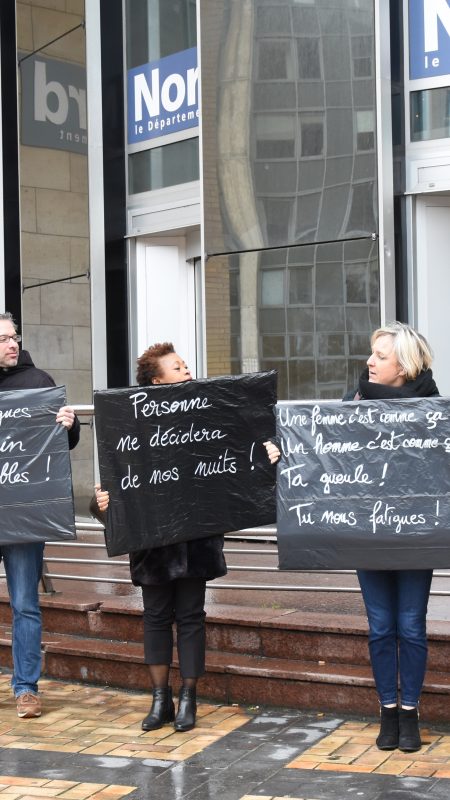 Nor
le Départe
N
le
rd
ment
ques
in
bles !
Personne
ne décidera
de nos nuits !
Une femme c'est comme ça
Un homme c'est comme ç
Ta gueule !
Tu nous fatigues !